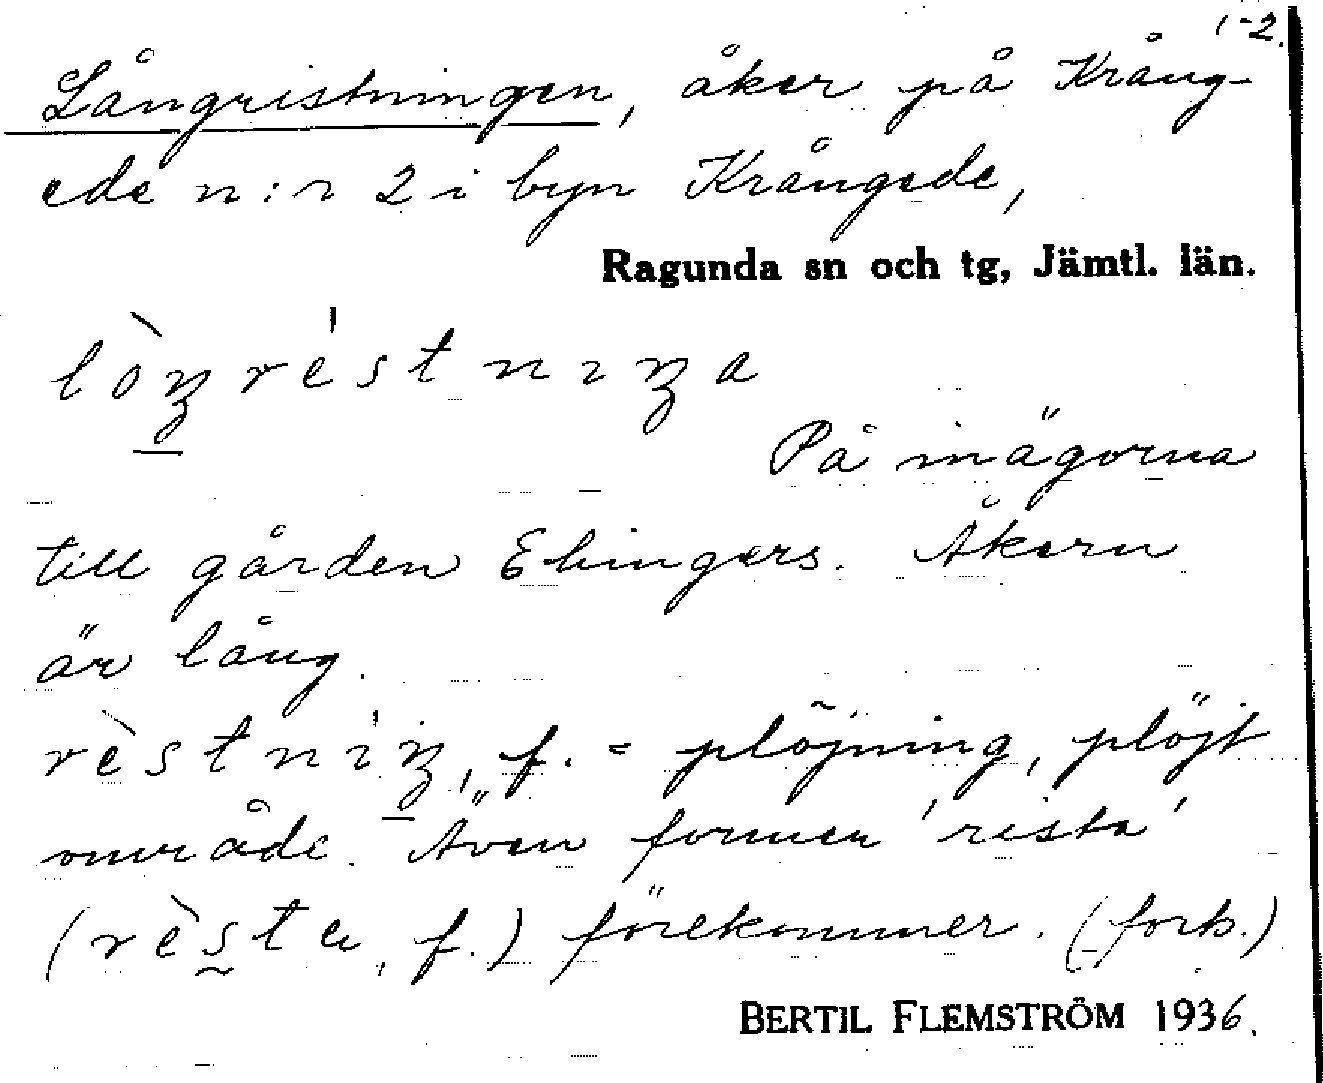 1-2.
Långristningen, åker på Krång-
ede n:r 2 i byn Krångede,
Ragunda sn och tg, Jämtl. län.
På inägorna
till gården Ehingers. Åkern
är lång.
f. = plöjning, plöjt
område. Även formen 'rista'
f.) förekommer. (forts.)
BERTIL FLEMSTRÖM 1936.